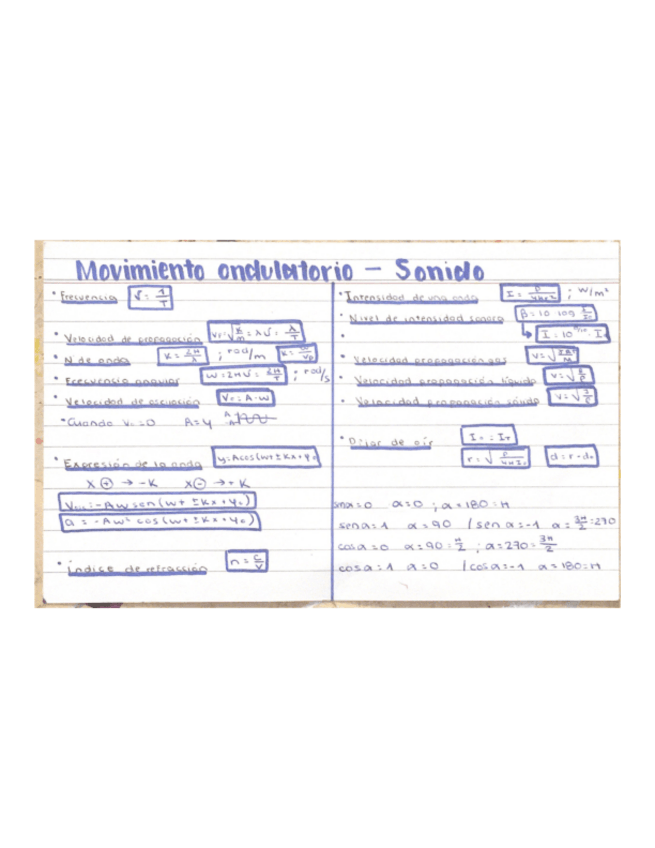 Movimiento ondulatorio - Sonido
• Frecuencia √ = 1/T
• Velocidad de propagación = λ√ = λ/T
• N de onda K = 2π/λ ; rad/m K = ω/Vp
• Frecuencia angular ω = 2π√ = 2π/T ; rad/s
• Velocidad de oscilación A·ω
• Cuando V = 0 A = y
• Expresión de la onda y = A cos(ωt ± Kx + φ₀
X ⊕ → -K X ⊖ → + K
= -Aω sen(ωt ± Kx + φ₀)
a = -Aω² cos(ωt ± Kx + φ₀)
• índice de refracción n = c/v
• Intensidad de una onda I = P/4πr² ; W/m²
• Nivel de intensidad sonora β = 10 log I/I₀
•
• Velocidad propagación gas
• Velocidad propagación líquido
• Velocidad propagación sólido
• Dejar de oír
r = √ P/4πI₀ d = r - d₀
sen α = 0 α = 0 ; α = 180 = π
sen α = 1 α = 90 / sen α = -1 α = 3π/2 = 270
cos α = 0 α = 90 = π/2 ; α = 270 = 3π/2
cos α = 1 α = 0 / cos α = -1 α = 180 = π